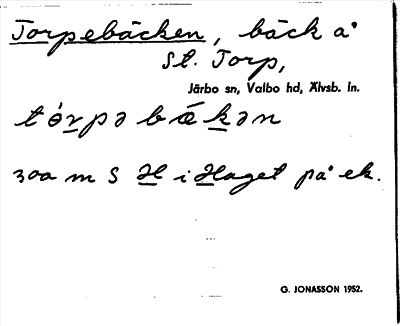 Torpebäcken, bäck å
St. Torp,
Järbo sn, Valbo hd, Älvsb. ln.
tórpə bǽkən
300 m S H i Haget på ek.
G. JONASSON 1952.